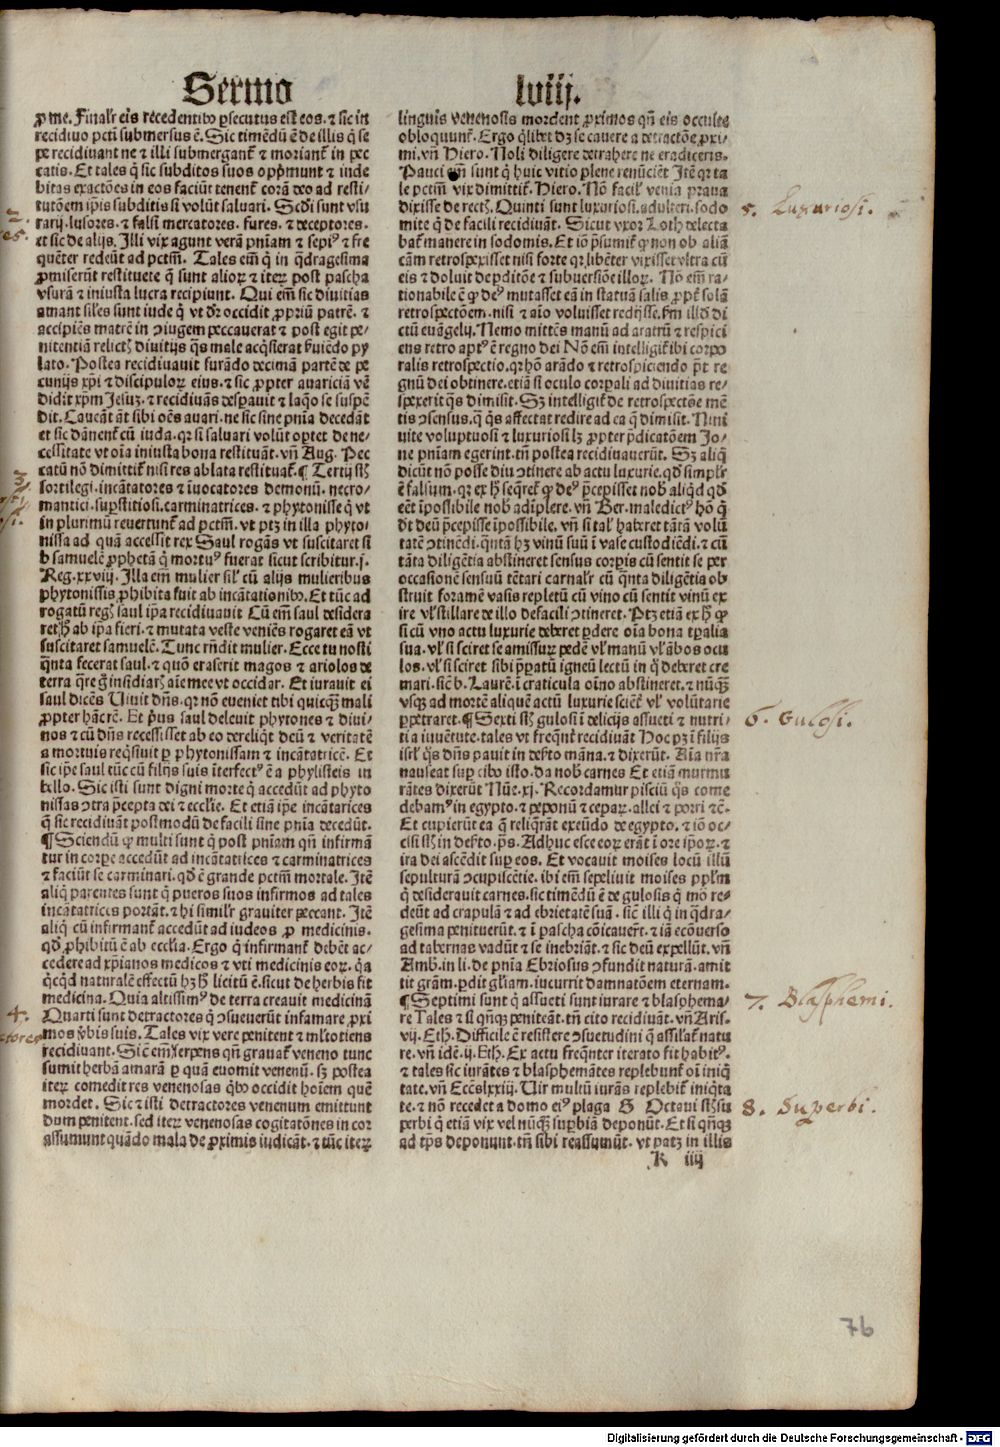 Sermo lviij.
ꝓ me. Finalr̄ eis recedentibꝰ ꝑsecutus est eos. ⁊ sic in
recidiuo pctm̄ submersus ē. Sic timēdū ē de illis q̄ se
pe recidiuant ne ⁊ illi submergant̄ ⁊ moriant̄ in pec
catis. Et tales q̄ sic subditos suos opp̄munt ⁊ inde
bitas exactōes in eos faciūt tenent̄ corā deo ad resti/
tutōem ip̄is subditis si volūt saluari. Scd̄i sunt vsu
rarij. lusores. ⁊ falsi mercatores. fures. ⁊ deceptores.
et sic de alijs. Illi vix agunt verā pn̄iam ⁊ sepiꝰ ⁊ fre
quēter redeūt ad pctm̄. Tales em̄ q̄ in q̄dragesima
ꝓmiserūt restituere q̄ sunt alioꝝ ⁊ iteꝝ post pascha
vsurā ⁊ iniusta lucra recipiunt. Qui em̄ sic diuitias
amant siles sunt iude q̄ vt dr̄ occidit ꝓpriū patrē. ⁊
accipiēs matrē in ↄiugem peccauerat ⁊ post egit pe/
nitentiā relict̄ diuitijs q̄s male acq̄sierat ẜuiēdo py
lato. Postea recidiuauit furādo decimā partē de pe
cunijs xp̄i ⁊ discipuloꝝ eius. ⁊ sic ꝓpter auariciā vē
didit xp̄m Jesuꝫ. ⁊ recidiuās despauit ⁊ laq̄o se suspē
dit. Caueāt āt sibi oēs auari. ne sic sine pn̄ia decedāt
et sic dānent̄ cū iuda. qꝛ si saluari volūt oꝑtet de ne/
cessitate vt oīa iniusta bona restituāt. vn̄ Aug. Pec
catū nō dimittit̄ nisi res ablata restituat̄. ¶ Tertij sūt
sortilegi. incātatores ⁊ īuocatores demonū. necro/
mantici. suꝑstitiosi. carminatrices. ⁊ phytonisse q̄ vt
in plurimū reuertunt̄ ad pctm̄. vt ptꝫ in illa phyto/
nissa ad quā accessit rex Saul rogās vt suscitaret si
bi samuelē ꝓphetā q̄ mortuꝰ fuerat sicut scribitur. j.
Reg. xxviij. Illa em̄ mulier sil̄ cū alijs mulieribus
phytonissis ꝓhibita fuit ab incātationibꝰ. Et tūc ad
rogatū reḡ saul ip̄a recidiuauit Cū em̄ saul desidera
ret ab ip̄a fieri. ⁊ mutata veste veniēs rogaret eā vt
suscitaret samuelē. Tunc rn̄dit mulier. Ecce tu nosti
q̄nta fecerat saul. ⁊ quō eraserit magos ⁊ ariolos de
terra q̄re g̊ insidiar̄ aīe mee vt occidar. Et iurauit ei
saul dicēs Uiuit dn̄s. qꝛ nō eueniet tibi quicq̄ mali
ꝓpter hāc rē. Et p̄us saul deleuit phytones ⁊ diui/
nos ⁊ cū dn̄s recessisset ab eo dereliq̄t deū ⁊ veritatē
a mortuis req̄siuit ꝑ phytonissam ⁊ incātatricē. Et
sic ip̄e saul tūc cū filijs suis īterfectꝰ ē a phylisteis in
bello. Sic isti sunt digni morte q̄ accedūt ad phyto
nissas ↄtra p̄cepta dei ⁊ ecclie. Et etiā ip̄e incātarices
q̄ sic recidiuāt postmodū de facili sine pn̄ia decedūt.
¶ Sciendū ꝙ multi sunt q̄ post pn̄iam qn̄ infirmā
tur in corꝑe accedūt ad incātatrices ⁊ carminatrices
⁊ faciūt se carminari. qd̄ ē grande pctm̄ mortale. Itē
aliq̄ parentes sunt q̄ pueros suos infirmos ad tales
incātatrices portāt. ⁊ hi similr̄ grauiter peccant. Itē
aliq̄ cū infirmant̄ accedūt ad iudeos ꝓ medicinis.
qd̄ ꝓhibitū ē ab ecclīa. Ergo q̄ infirmant̄ debēt ac/
cedere ad xp̄ianos medicos ⁊ vti medicinis eoꝝ. q̄a
q̄cq̄d naturalē effectū hꝫ licitū ē. sicut de herbis fit
medicina. Quia altissimꝰ de terra creauit medicinā
Quarti sunt detractores q̄ ↄsueuerūt infamare ꝓxi
mos v̄bis suis. Tales vix vere penitent ⁊ ml̄totiens
recidiuant. Sic em̄ serpens qn̄ grauat̄ veneno tunc
sumit herbā amarā ꝑ quā euomit venenū. sꝫ postea
iteꝝ comedit res venenosas q̄bꝰ occidit hoīem quē
mordet. Sic ⁊ isti detractores venenum emittunt
dum penitent. sed iteꝝ venenosas cogitatōnes in cor
assumunt quādo mala de ꝓximis iudicāt. ⁊ tūc iteꝝ
linguis venenosis mordent ꝓximos qn̄ eis occulte
obloquunt̄. Ergo q̄libet dꝫ se cauere a detractōe ꝓxi/
mi. vn̄ Hiero. Noli diligere detrahere ne eradiceris.
Pauci em̄ sunt q̄ huic vitio plene renūciēt Itē qꝛ ta
le pctm̄ vix dimittit̄. Hiero. Nō facil̄ venia praua
dixisse de rect̄. Quinti sunt luxuriosi. adulteri. sodo
mite q̄ de facili recidiuāt. Sicut vxor Loth delecta
bat̄ manere in sodomis. Et iō p̄sumit̄ ꝙ non ob aliā
cām retrospexisset nisi forte qꝛ libēter vixisset vltra cū
eis ⁊ doluit de ꝑditōe ⁊ subuersiōe illoꝝ. Nō em̄ ra/
tionabile ē ꝙ deꝰ mutasset eā in statuā salis ꝓpt̄ solā
retrospectōem. nisi ⁊ aīo voluisset redijsse. ẜm illd̄ di
ctū euāgelij. Nemo mittēs manū ad aratrū ⁊ respici
ens retro aptꝰ ē regno dei Nō em̄ intelligit̄ ibi corpo
ralis retrospectio. qꝛ hō arādo ⁊ retrospiciendo p̄t re
gnū dei obtinere. etiā si oculo corꝑali ad diuitias re/
spexerit q̄s dimisit. Sꝫ intelligit̄ de retrospectōe mē
tis ↄsensus. q̄ q̄s affectat redire ad ea q̄ dimisit. Nini
uite voluptuosi ⁊ luxuriosi lꝫ ꝓpter p̄dicatōem Jo/
ne pn̄iam egerint. tn̄ postea recidiuauerūt. Sꝫ aliq̄
dicūt nō posse diu ↄtinere ab actu luxurie. qd̄ simplr̄
ē falsum. qꝛ ex h̄ seq̄ret̄ ꝙ deꝰ p̄cepisset nob̄ aliq̄d qd̄
eēt īpossibile nob̄ adīplere. vn̄ Ber. maledictꝰ hō q̄
dt̄ deū p̄cepisse īpossibile. vn̄ si tal̄ haberet tātā volū
tatē ↄtinēdi. q̄ntā hꝫ vinū suū ī vase custodiēdi. ⁊ cū
tāta diligētia abstineret sensus corꝑis cū sentit se per
occasionē sensuū tētari carnalr̄ cū q̄nta diligētia ob
struit foramē vasis repletū cū vino cū sentit vinū ex
ire vl̄ stillare de illo defacili ↄtineret. Ptꝫ etiā ex h̄ ꝙ
si cū vno actu luxurie deberet ꝑdere oīa bona tꝑalia
sua. vl̄ si sciret se amissuꝝ pedē vl̄ manū vl̄ ābos ocu
los. vl̄ si sciret sibi p̄paratū igneū lectū in q̄ deberet cre
mari. sic b. Laurē. ī craticula oīno abstineret. ⁊ nūq̄
vsqꝫ ad mortē aliquē actū luxurie scienter vl̄ volūtarie
ꝑpetraret. ¶ Sexti sūt gulosi ī delicijs assueti ⁊ nutri/
ti a iuuētute. tales vt freq̄nt̄ recidiuāt Hoc pꝫ ī filijs
isrl̄ q̄s dn̄s pauit in deẜto māna. ⁊ dixerūt. Aīa nr̄a
nauseat suꝑ cibo isto. da nob̄ carnes Et etiā murmu
rātes dixerūt Nūe. xj. Recordamur pisciū q̄s come
debamꝰ in egypto. ⁊ peponū ⁊ ceparꝝ. allei ⁊ porri ⁊c̄.
Et cupierūt ea q̄ reliq̄rāt exeūdo de egypto. ⁊ iō oc/
cisi sūt in deẜto. p̄s. Adhuc esce eoꝝ erāt ī ore ip̄oꝝ. ⁊
ira dei ascēdit suꝑ eos. Et vocauit moises locū illū
sepulturā ↄcupiscētie. ibi em̄ sepeliuit moises ppl̄m
q̄ desiderauit carnes. sic timēdū ē de gulosis q̄ mō re/
deūt ad crapulā ⁊ ad ebrietatē suā. sicē illi q̄ in q̄dra/
gesima penituerūt. ⁊ ī pascha cōicauer̄t. ⁊ iā ecōuerso
ad tabernas vadūt ⁊ se inebriāt. ⁊ sic deū expellūt. vn̄
Amb. in li. de pn̄ia Ebriosus ↄfundit naturā. amit
tit gr̄am. ꝑdit gl̄iam. īcurrit damnatōem eternam.
¶ Septimi sunt q̄ assueti sunt iurare ⁊ blasphema/
re Tales ⁊ si qn̄qꝫ peniteāt. tn̄ cito recidiuāt. vn̄ Aris.
vij. Eth̄. Difficile ē resistere ↄsuetudini q̄ assilat̄ natu
re. vn̄ idē. ij. Eth̄. Ex actu freq̄nter iterato fit habitꝰ.
⁊ tales sic iurātes ⁊ blasphemātes replebunt̄ oī iniq̄
tate. vn̄ Eccs̄ lxxiij. Uir multū iurās replebit̄ iniq̄ta
te. ⁊ nō recedet a domo eiꝰ plaga Octaui sūt su
perbi q̄ etiā vix vel nūqꝫ suꝑbiā deponūt. Et si qn̄qꝫ
ad tp̄s deponunt. tn̄ sibi reassumūt. vt patꝫ in illis
K iiij
2.
3.
4.
5. Luxuriosi.
6. Gulosi.
7. Blasphemi.
8. Superbi.
76
Digitalisierung gefördert durch die Deutsche Forschungsgemeinschaft - DFG